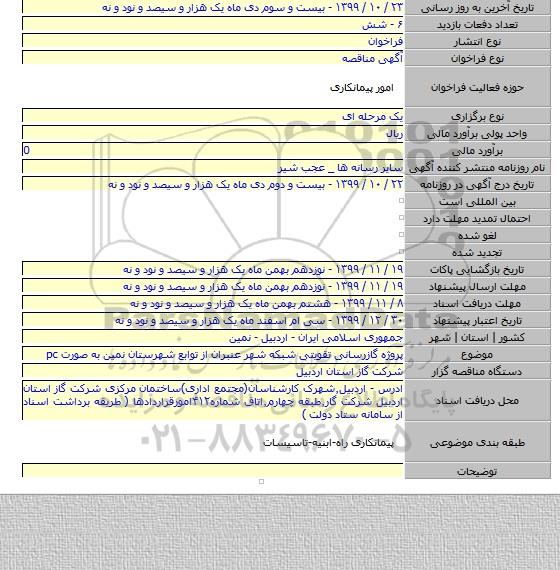 تاریخ آخرین به روز رسانی ۲۳ / ۱۰ / ۱۳۹۹ - بیست و سوم دی ماه یک هزار و سیصد و نود و نه
تعداد دفعات بازدید ۶ - شش
نوع انتشار فراخوان
نوع فراخوان آگهی مناقصه
حوزه فعالیت فراخوان امور پیمانکاری
نوع برگزاری یک مرحله ای
واحد پولی برآورد مالی ریال
برآورد مالی 0
نام روزنامه منتشر کننده آگهی سایر رسانه ها _ عجب شیر
تاریخ درج آگهی در روزنامه ۲۲ / ۱۰ / ۱۳۹۹ - بیست و دوم دی ماه یک هزار و سیصد و نود و نه
بین المللی است
احتمال تمدید مهلت دارد
لغو شده
تجدید شده
تاریخ بازگشایی پاکات ۱۹ / ۱۱ / ۱۳۹۹ - نوزدهم بهمن ماه یک هزار و سیصد و نود و نه
مهلت ارسال پیشنهاد ۱۹ / ۱۱ / ۱۳۹۹ - نوزدهم بهمن ماه یک هزار و سیصد و نود و نه
مهلت دریافت اسناد ۸ / ۱۱ / ۱۳۹۹ - هشتم بهمن ماه یک هزار و سیصد و نود و نه
تاریخ اعتبار پیشنهاد ۳۰ / ۱۲ / ۱۳۹۹ - سی ام اسفند ماه یک هزار و سیصد و نود و نه
کشور | استان | شهر جمهوری اسلامی ایران - اردبیل - نمین
موضوع پروژه گازرسانی تقویتی شبکه شهر عنبران از توابع شهرستان نمین به صورت pc
دستگاه مناقصه گزار شرکت گاز استان اردبیل
محل دریافت اسناد آدرس - اردبیل,شهرک کارشناسان(مجتمع اداری)ساختمان مرکزی شرکت گاز استان
اردبیل شرکت گاز,طبقه چهارم,اتاق شماره۴۱۲امورقراردادها ( طریقه برداشت اسناد
از سامانه ستاد دولت )
طبقه بندی موضوعی پیمانکاری راه-ابنیه-تاسیسات
توضیحات
۰۲۱-۸۸۳۴۹۶۷۰-۵